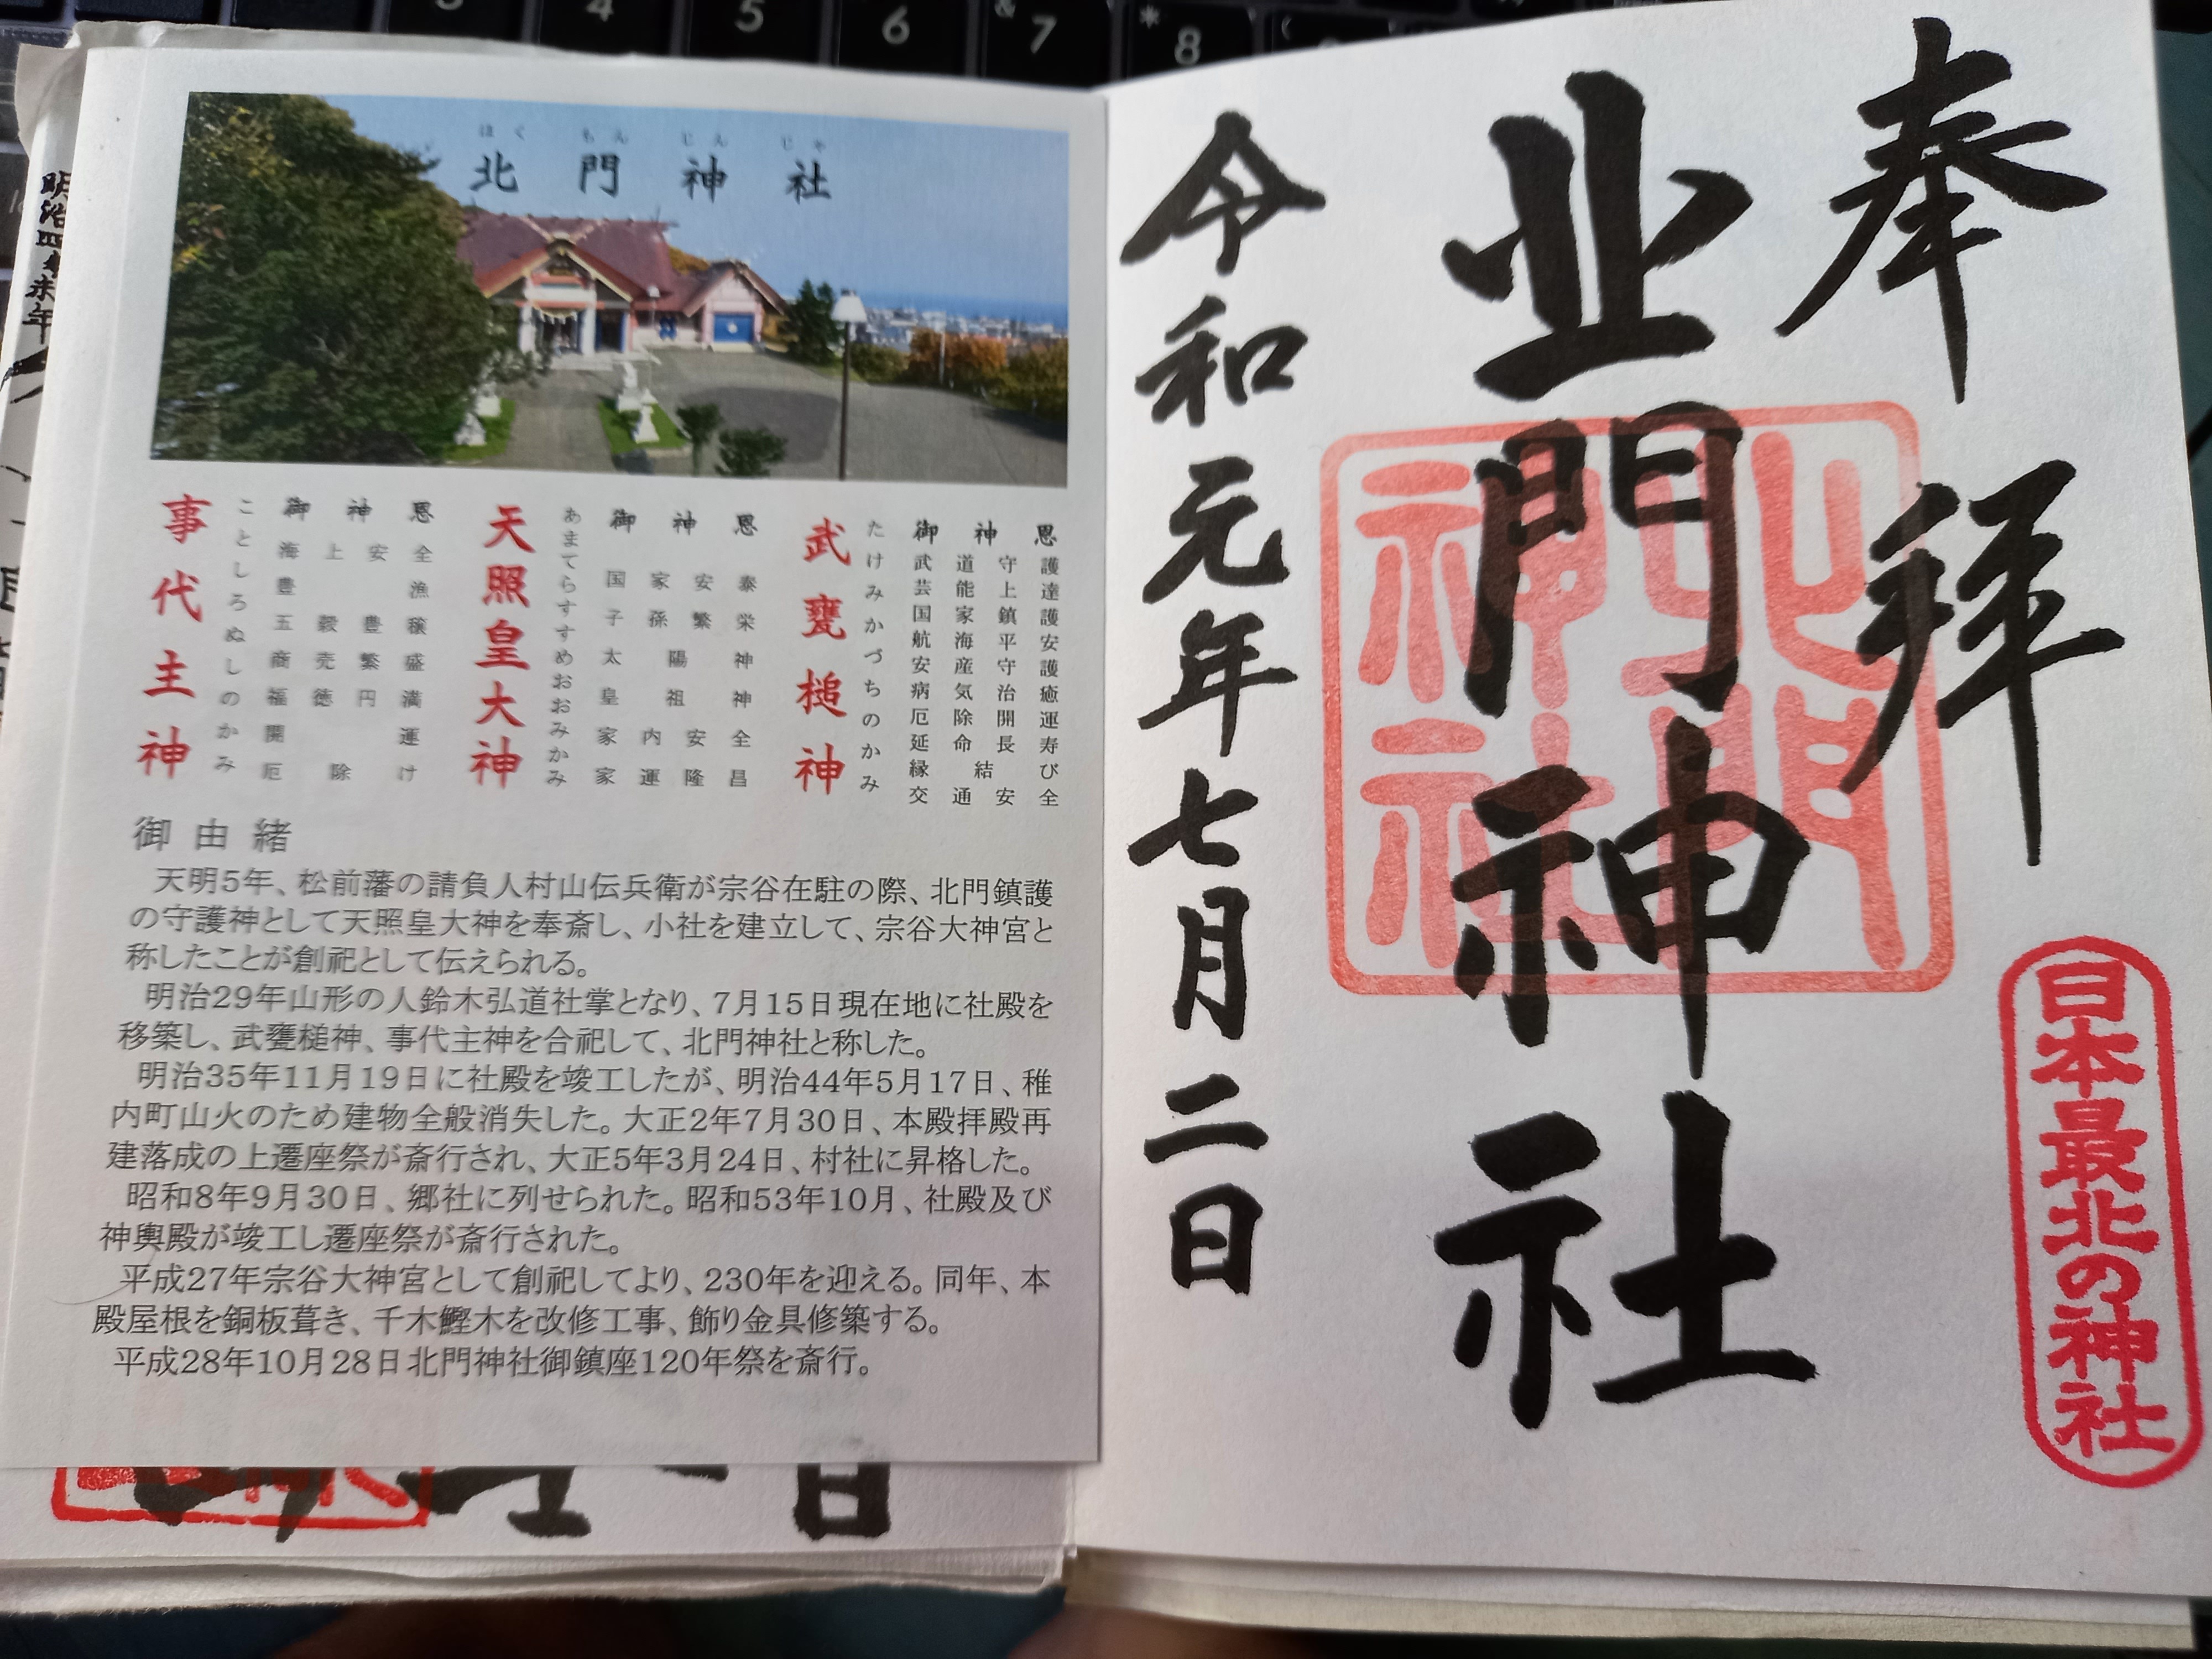 奉拝
北門神社
令和元年七月二日
北門神社
日本最北の神社
ほくもんじんじゃ
北門神社
武甕槌神
たけみかづちのかみ
御神恩
武道守護
芸能上達
国家鎮護
航海平安
安産守護
病気治癒
厄除開運
延命長寿
縁結び
交通安全
天照皇大神
あまてらすすめおおみかみ
御神恩
国家安泰
子孫繁栄
太陽神
皇祖神
家内安全
家運隆昌
事代主神
ことしろぬしのかみ
御神恩
海上安全
豊漁
五穀豊穣
商売繁盛
福徳円満
開運
厄除け
御由緒
天明5年、松前藩の請負人村山伝兵衛が宗谷在駐の際、北門鎮護
の守護神として天照皇大神を奉斎し、小社を建立して、宗谷大神宮と
称したことが創祀として伝えられる。
明治29年山形の人鈴木弘道社掌となり、7月15日現在地に社殿を
移築し、武甕槌神、事代主神を合祀して、北門神社と称した。
明治35年11月19日に社殿を竣工したが、明治44年5月17日、稚
内町山火のため建物全般消失した。大正2年7月30日、本殿拝殿再
建落成の上遷座祭が斎行され、大正5年3月24日、村社に昇格した。
昭和8年9月30日、郷社に列せられた。昭和53年10月、社殿及び
神輿殿が竣工し遷座祭が斎行された。
平成27年宗谷大神宮として創祀してより、230年を迎える。同年、本
殿屋根を銅板葺き、千木鰹木を改修工事、飾り金具修築する。
平成28年10月28日北門神社御鎮座120年祭を斎行。
日
4
5
6
& 7
* 8